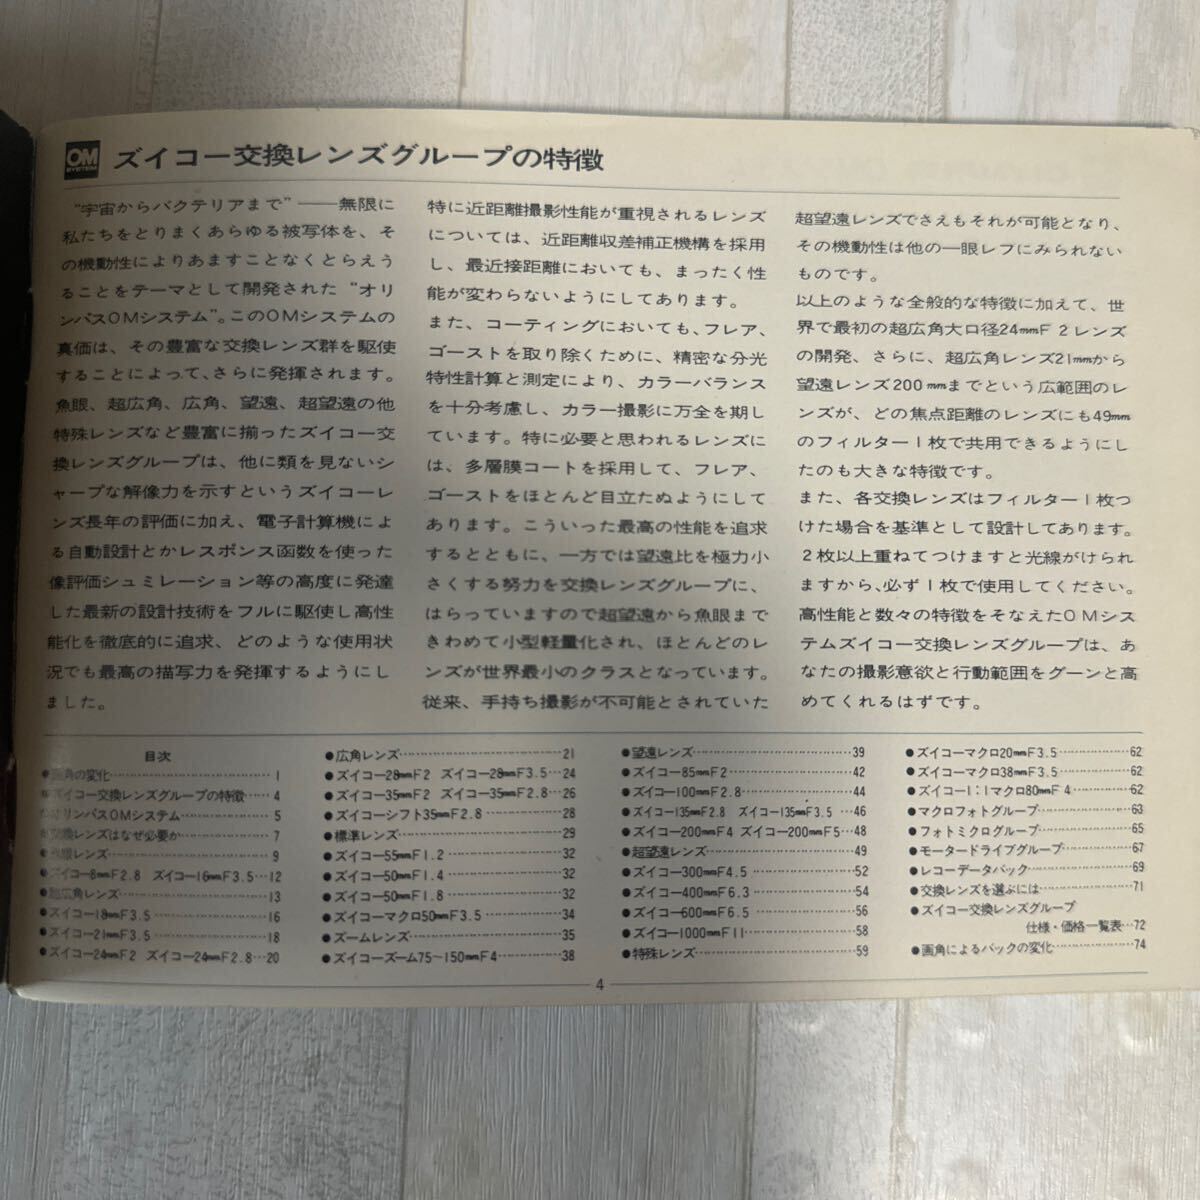 OM
SYSTEM
ズイコー交換レンズグループの特徴
“宇宙からバクテリアまで”――無限に
私たちをとりまくあらゆる被写体を、そ
の機動性によりあますことなくとらえう
ることをテーマとして開発された“オリ
ンパスOMシステム”。このOMシステムの
真価は、その豊富な交換レンズ群を駆使
することによって、さらに発揮されます。
魚眼、超広角、広角、望遠、超望遠の他
特殊レンズなど豊富に揃ったズイコー交
換レンズグループは、他に類を見ないシ
ャープな解像力を示すというズイコーレ
ンズ長年の評価に加え、電子計算機によ
る自動設計とかレスポンス函数を使った
像評価シュミレーション等の高度に発達
した最新の設計技術をフルに駆使し高性
能化を徹底的に追求、どのような使用状
況でも最高の描写力を発揮するようにし
ました。
特に近距離撮影性能が重視されるレンズ
については、近距離収差補正機構を採用
し、最近接距離においても、まったく性
能が変わらないようにしてあります。
また、コーティングにおいても、フレア、
ゴーストを取り除くために、精密な分光
特性計算と測定により、カラーバランス
を十分考慮し、カラー撮影に万全を期し
ています。特に必要と思われるレンズに
は、多層膜コートを採用して、フレア、
ゴーストをほとんど目立たぬようにして
あります。こういった最高の性能を追求
するとともに、一方では望遠比を極力小
さくする努力を交換レンズグループに、
はらっていますので超望遠から魚眼まで
きわめて小型軽量化され、ほとんどのレ
ンズが世界最小のクラスとなっています。
従来、手持ち撮影が不可能とされていた
超望遠レンズでさえもそれが可能となり、
その機動性は他の一眼レフにみられない
ものです。
以上のような全般的な特徴に加えて、世
界で最初の超広角大口径24mmF2レンズ
の開発、さらに、超広角レンズ21mmから
望遠レンズ200mmまでという広範囲のレ
ンズが、どの焦点距離のレンズにも49mm
のフィルター1枚で共用できるようにし
たのも大きな特徴です。
また、各交換レンズはフィルター1枚つ
けた場合を基準として設計してあります。
2枚以上重ねてつけますと光線がけられ
ますから、必ず1枚で使用してください。
高性能と数々の特徴をそなえたOMシス
テムズイコー交換レンズグループは、あ
なたの撮影意欲と行動範囲をグーンと高
めてくれるはずです。
目次
●画角の変化……1
●ズイコー交換レンズグループの特徴……4
●オリンパスOMシステム……5
●交換レンズはなぜ必要か……7
●魚眼レンズ……9
●ズイコー8mmF2.8 ズイコー16mmF3.5…12
●超広角レンズ……13
●ズイコー18mmF3.5……16
●ズイコー21mmF3.5……18
●ズイコー24mmF2 ズイコー24mmF2.8…20
●広角レンズ……21
●ズイコー28mmF2 ズイコー28mmF3.5…24
●ズイコー35mmF2 ズイコー35mmF2.8…26
●ズイコーシフト35mmF2.8……28
●標準レンズ……29
●ズイコー55mmF1.2……32
●ズイコー50mmF1.4……32
●ズイコー50mmF1.8……32
●ズイコーマクロ50mmF3.5……34
●ズームレンズ……35
●ズイコーズーム75〜150mmF4……38
●望遠レンズ……39
●ズイコー85mmF2……42
●ズイコー100mmF2.8……44
●ズイコー135mmF2.8 ズイコー135mmF3.5…46
●ズイコー200mmF4 ズイコー200mmF5…48
●超望遠レンズ……49
●ズイコー300mmF4.5……52
●ズイコー400mmF6.3……54
●ズイコー600mmF6.5……56
●ズイコー1000mmF11……58
●特殊レンズ……59
●ズイコーマクロ20mmF3.5……62
●ズイコーマクロ38mmF3.5……62
●ズイコー1:1マクロ80mmF4……62
●マクロフォトグループ……63
●フォトミクログループ……65
●モータードライブグループ……67
●レコーデータバック……69
●交換レンズを選ぶには……71
●ズイコー交換レンズグループ
仕様・価格一覧表…72
●画角によるバックの変化……74
4